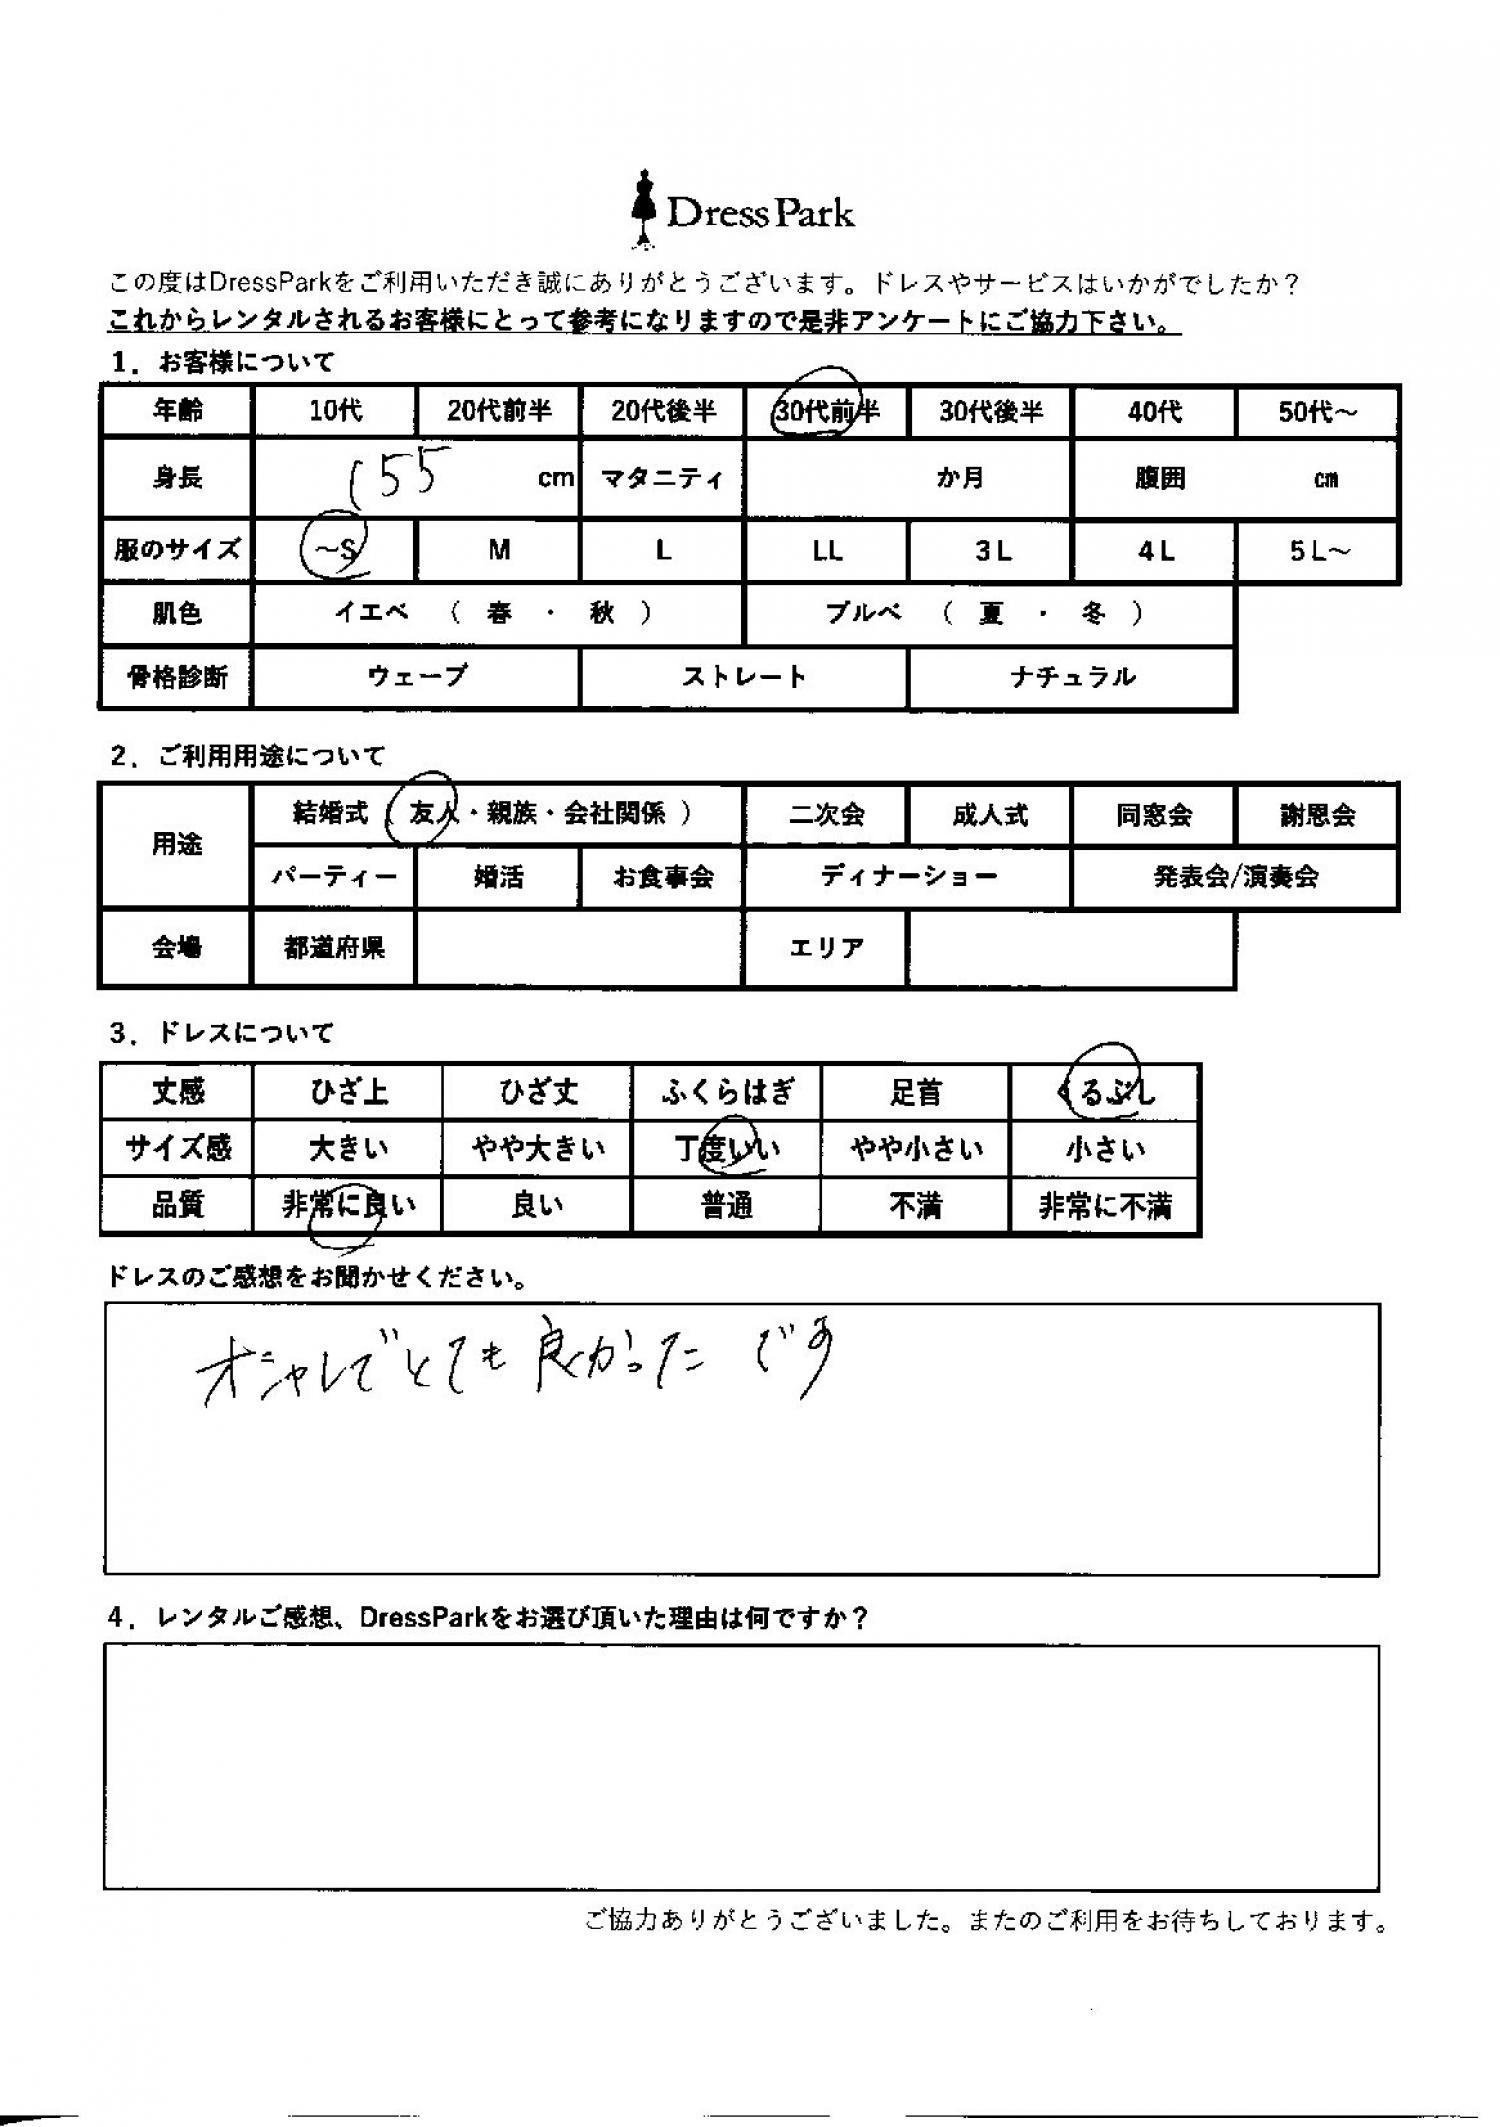 DressPark
この度はDressParkをご利用いただき誠にありがとうございます。ドレスやサービスはいかがでしたか？
これからレンタルされるお客様にとって参考になりますので是非アンケートにご協力下さい。
1．お客様について
年齢 10代 20代前半 20代後半 30代前半 30代後半 40代 50代～
身長 155 cm マタニティ か月 腹囲 cm
服のサイズ ～S M L LL 3L 4L 5L～
肌色 イエベ （ 春 ・ 秋 ） ブルベ （ 夏 ・ 冬 ）
骨格診断 ウェーブ ストレート ナチュラル
2．ご利用用途について
用途 結婚式（ 友人・親族・会社関係 ） 二次会 成人式 同窓会 謝恩会
パーティー 婚活 お食事会 ディナーショー 発表会/演奏会
会場 都道府県 エリア
3．ドレスについて
丈感 ひざ上 ひざ丈 ふくらはぎ 足首 くるぶし
サイズ感 大きい やや大きい 丁度いい やや小さい 小さい
品質 非常に良い 良い 普通 不満 非常に不満
ドレスのご感想をお聞かせください。
オシャレでとても良かった です
4．レンタルご感想、DressParkをお選び頂いた理由は何ですか？
ご協力ありがとうございました。またのご利用をお待ちしております。